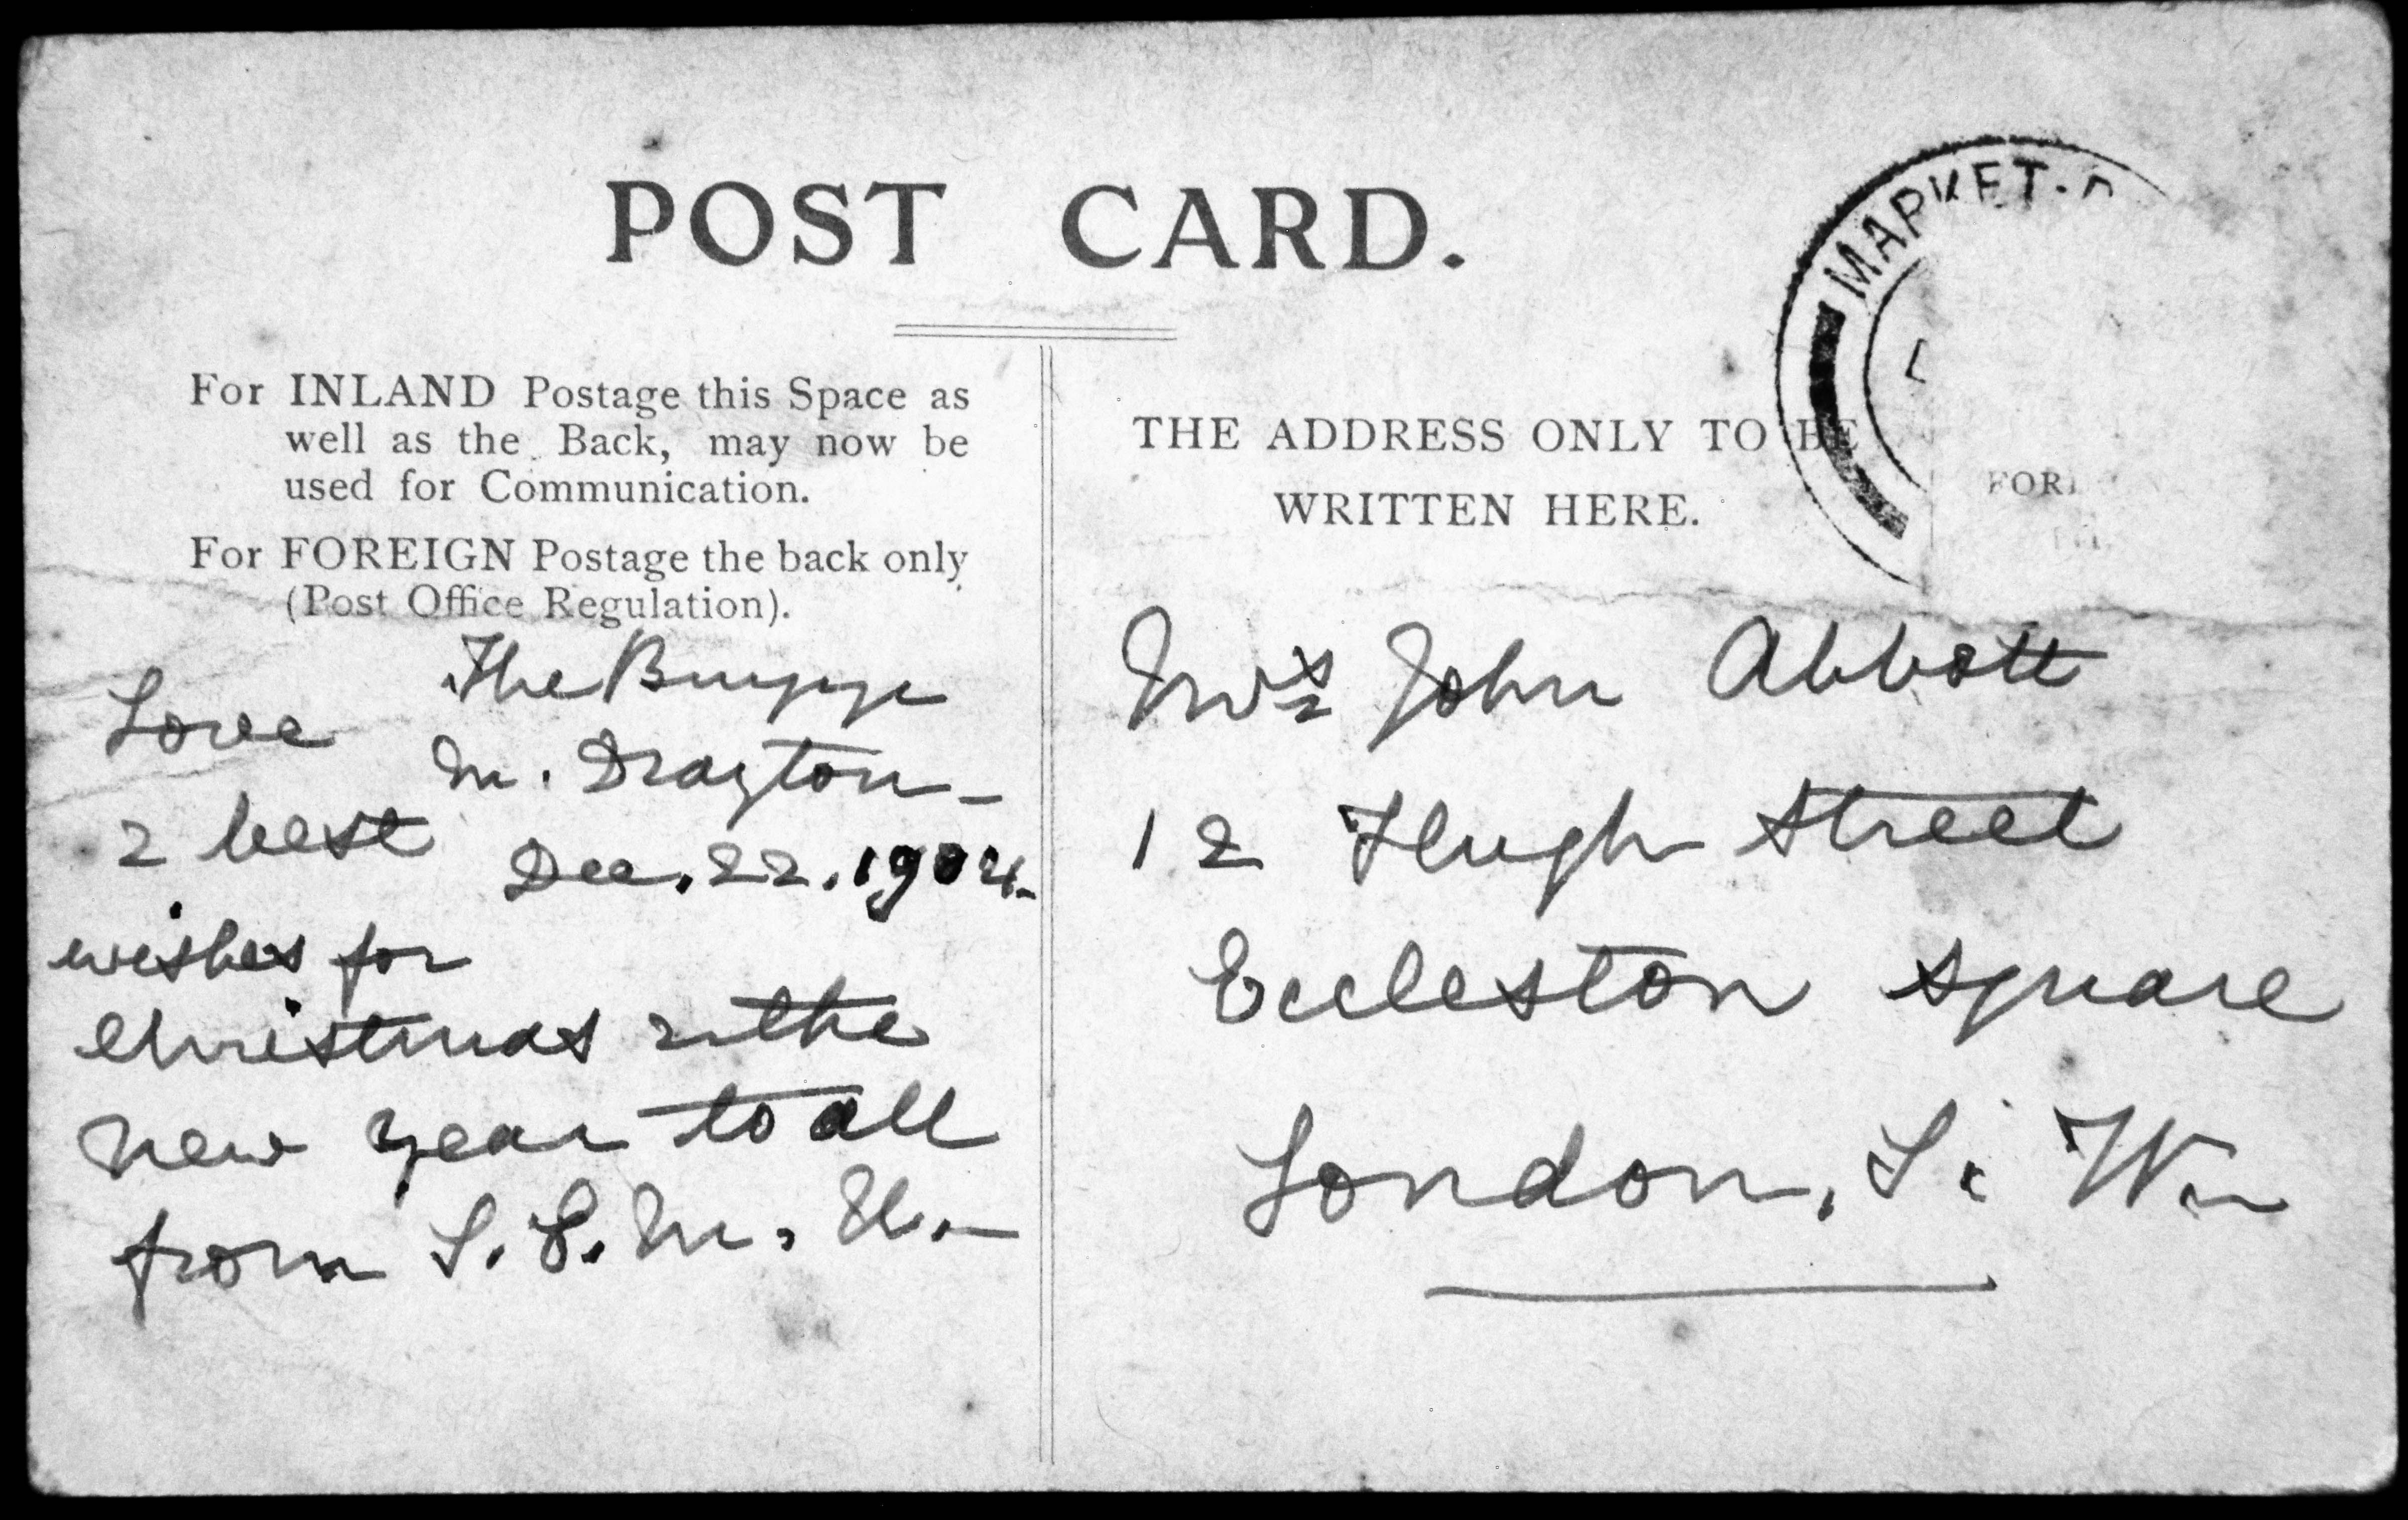 POST CARD.
For INLAND Postage this Space as
well as the Back, may now be
used for Communication.
For FOREIGN Postage the back only
(Post Office Regulation).
The
M. Drayton
Dec. 22. 1904.
Love
& best
wishes for
Christmas & the
New Year to all
from
MARKET.D
THE ADDRESS ONLY TO BE
WRITTEN HERE.
FOR
Mrs John Abbott
12 Hugh Street
Eccleston Square
London, S. W.